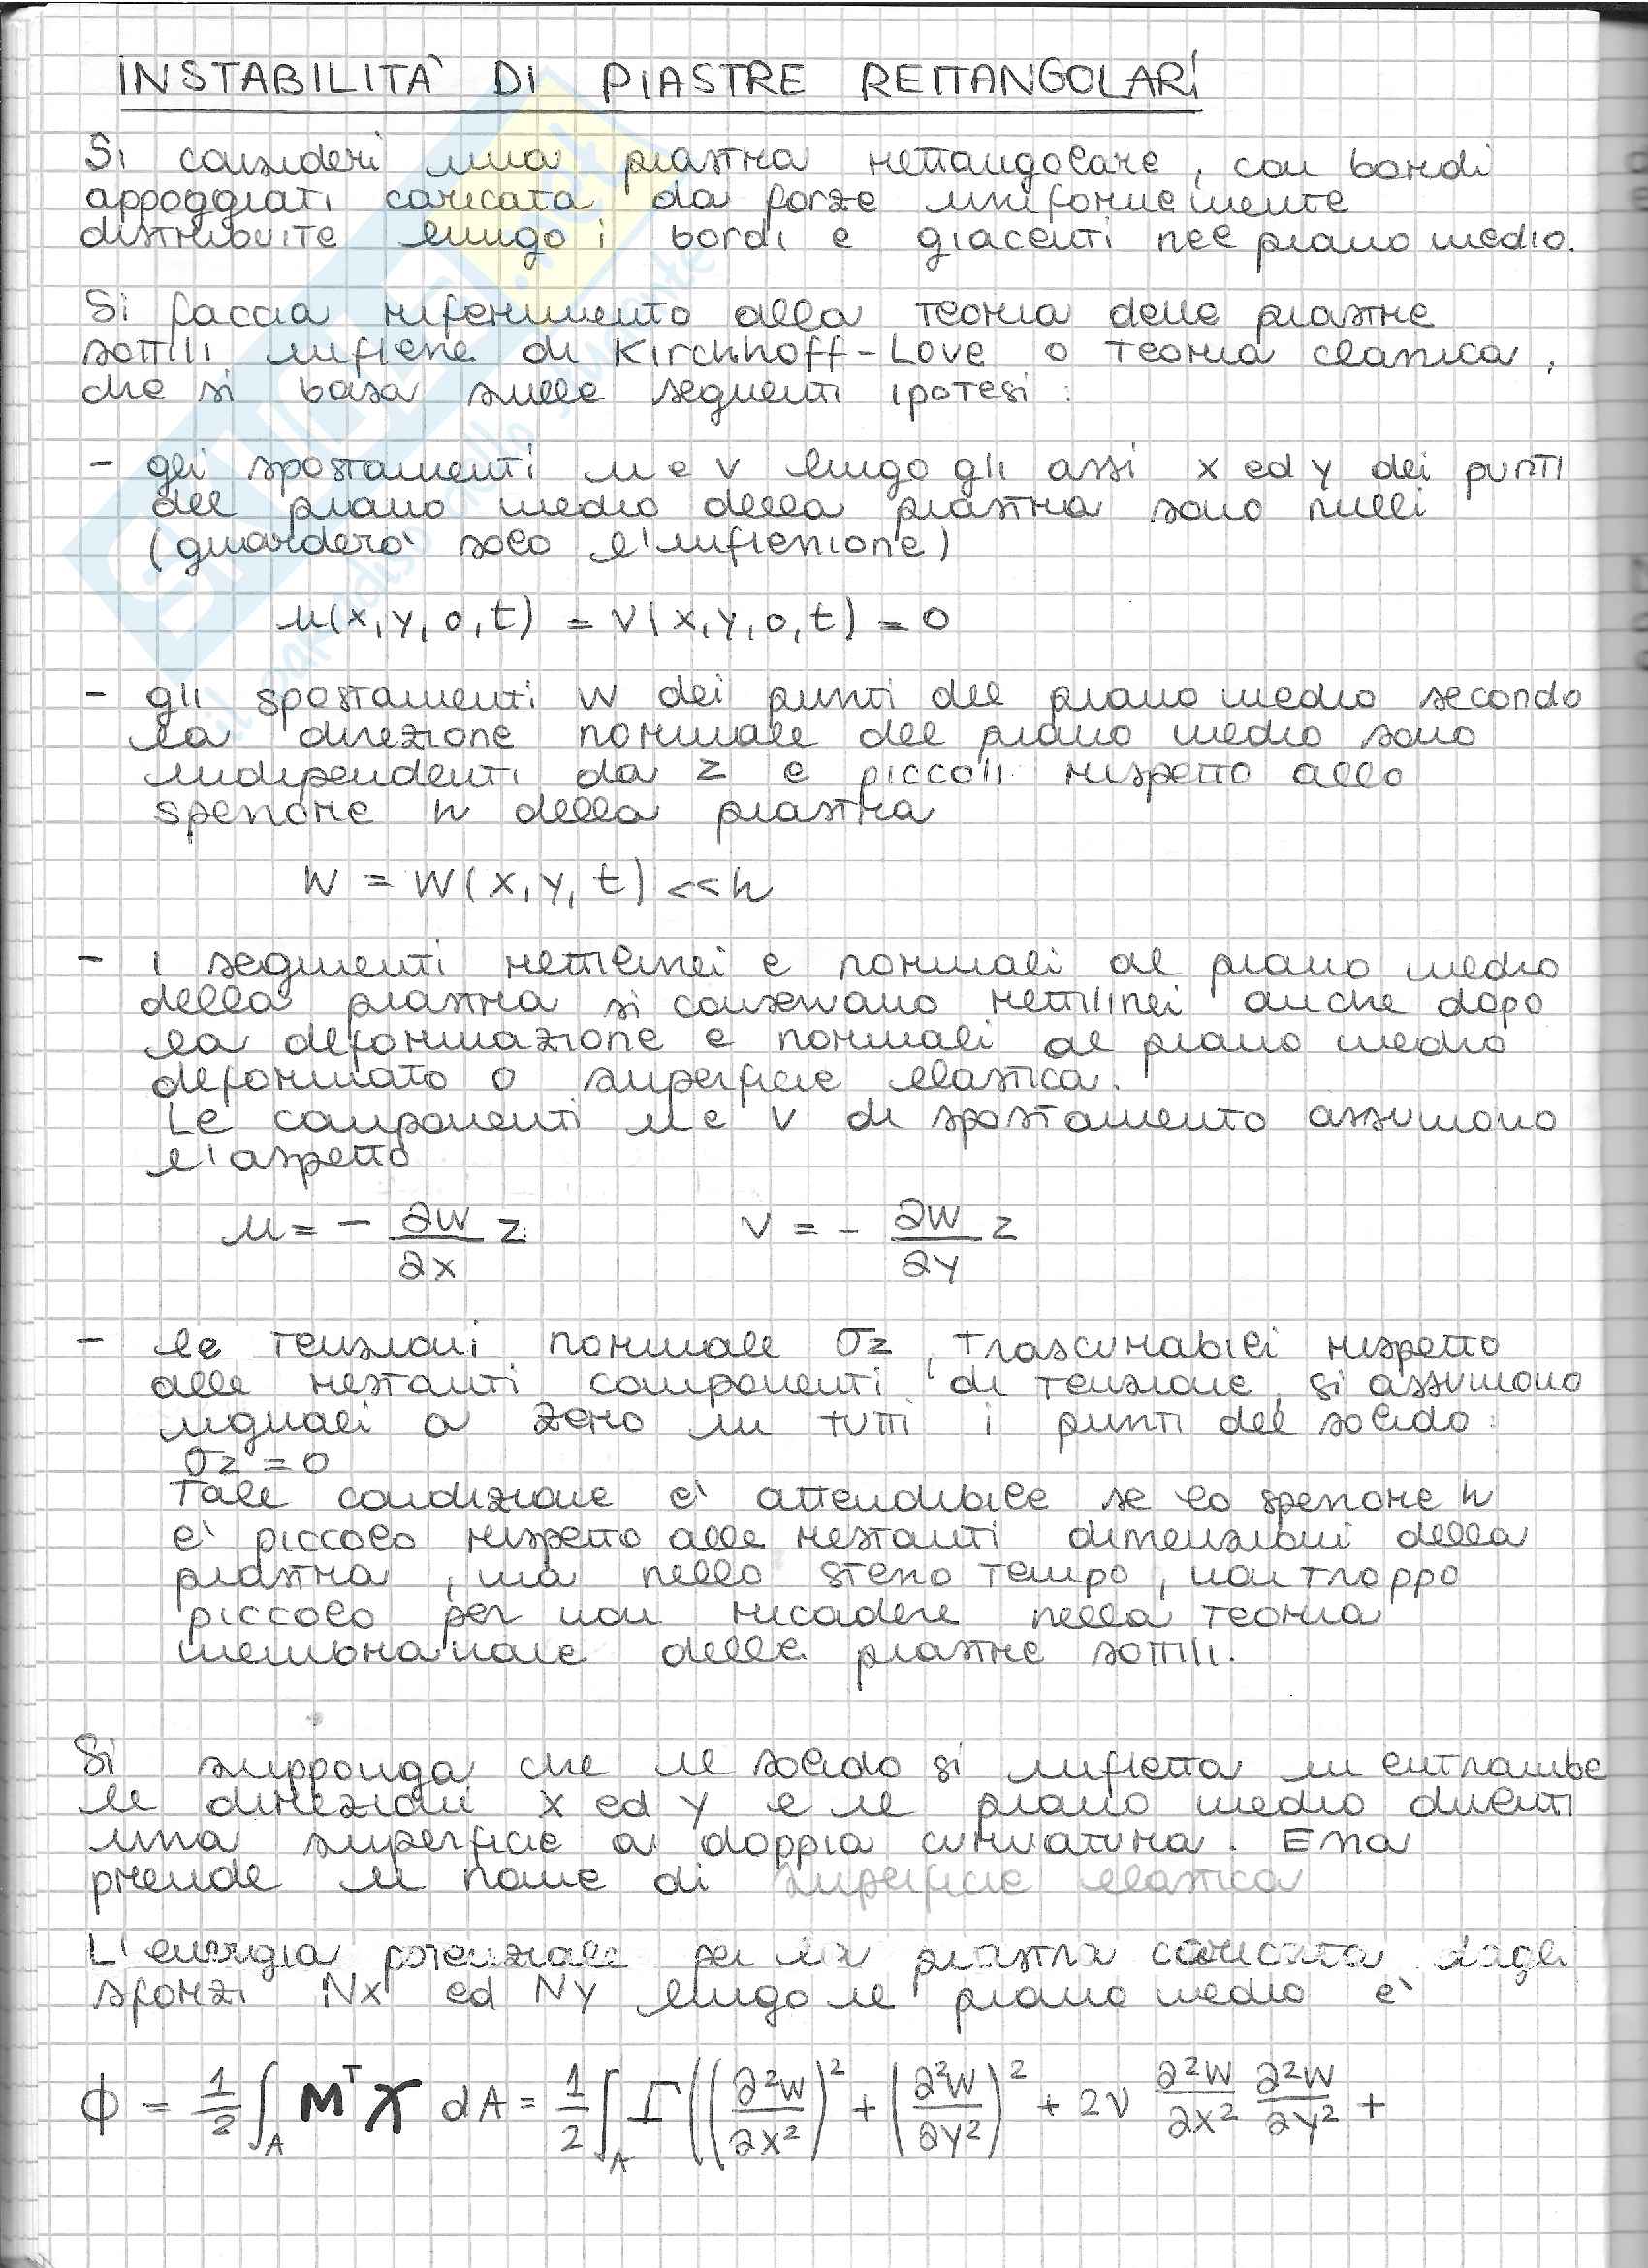 INSTABILITA' DI PIASTRE RETTANGOLARI
Si consideri una piastra rettangolare, con bordi
appoggiati caricata da forze uniformemente
distribuite lungo i bordi e giacenti nel piano medio.
Si faccia riferimento alla teoria delle piastre
sottili inflesse di Kirchhoff-Love o teoria classica,
che si basa sulle seguenti ipotesi:
- gli spostamenti u e v lungo gli assi x ed y dei punti
del piano medio della piastra sono nulli
(guarderò solo l'inflessione)
u(x,y,0,t) = v(x,y,0,t) = 0
- gli spostamenti w dei punti del piano medio secondo
la direzione normale del piano medio sono
indipendenti da z e piccoli rispetto allo
spessore h della piastra
w = w(x,y,t) << h
- i segmenti rettilinei e normali al piano medio
della piastra si conservano rettilinei anche dopo
la deformazione e normali al piano medio
deformato o superficie elastica.
Le componenti u e v di spostamento assumono
l'aspetto
u = - ∂w/∂x z v = - ∂w/∂y z
- le tensioni normale σz, trascurabili rispetto
alle restanti componenti di tensione, si assumono
uguali a zero in tutti i punti del solido:
σz = 0
Tale condizione è attendibile se lo spessore h
è piccolo rispetto alle restanti dimensioni della
piastra, ma nello stesso tempo, non troppo
piccolo per non ricadere nella teoria
membranale delle piastre sottili.
Si supponga che il solido si infletta in entrambe
le direzioni x ed y e il piano medio diventi
una superficie a doppia curvatura. Essa
prende il nome di superficie elastica
L'energia potenziale per la piastra caricata dagli
sforzi Nx ed Ny lungo il piano medio è
ϕ = 1/2 ∫A M^T χ dA = 1/2 ∫A Γ ((∂²w/∂x²)² + (∂²w/∂y²)² + 2ν ∂²w/∂x² ∂²w/∂y² +